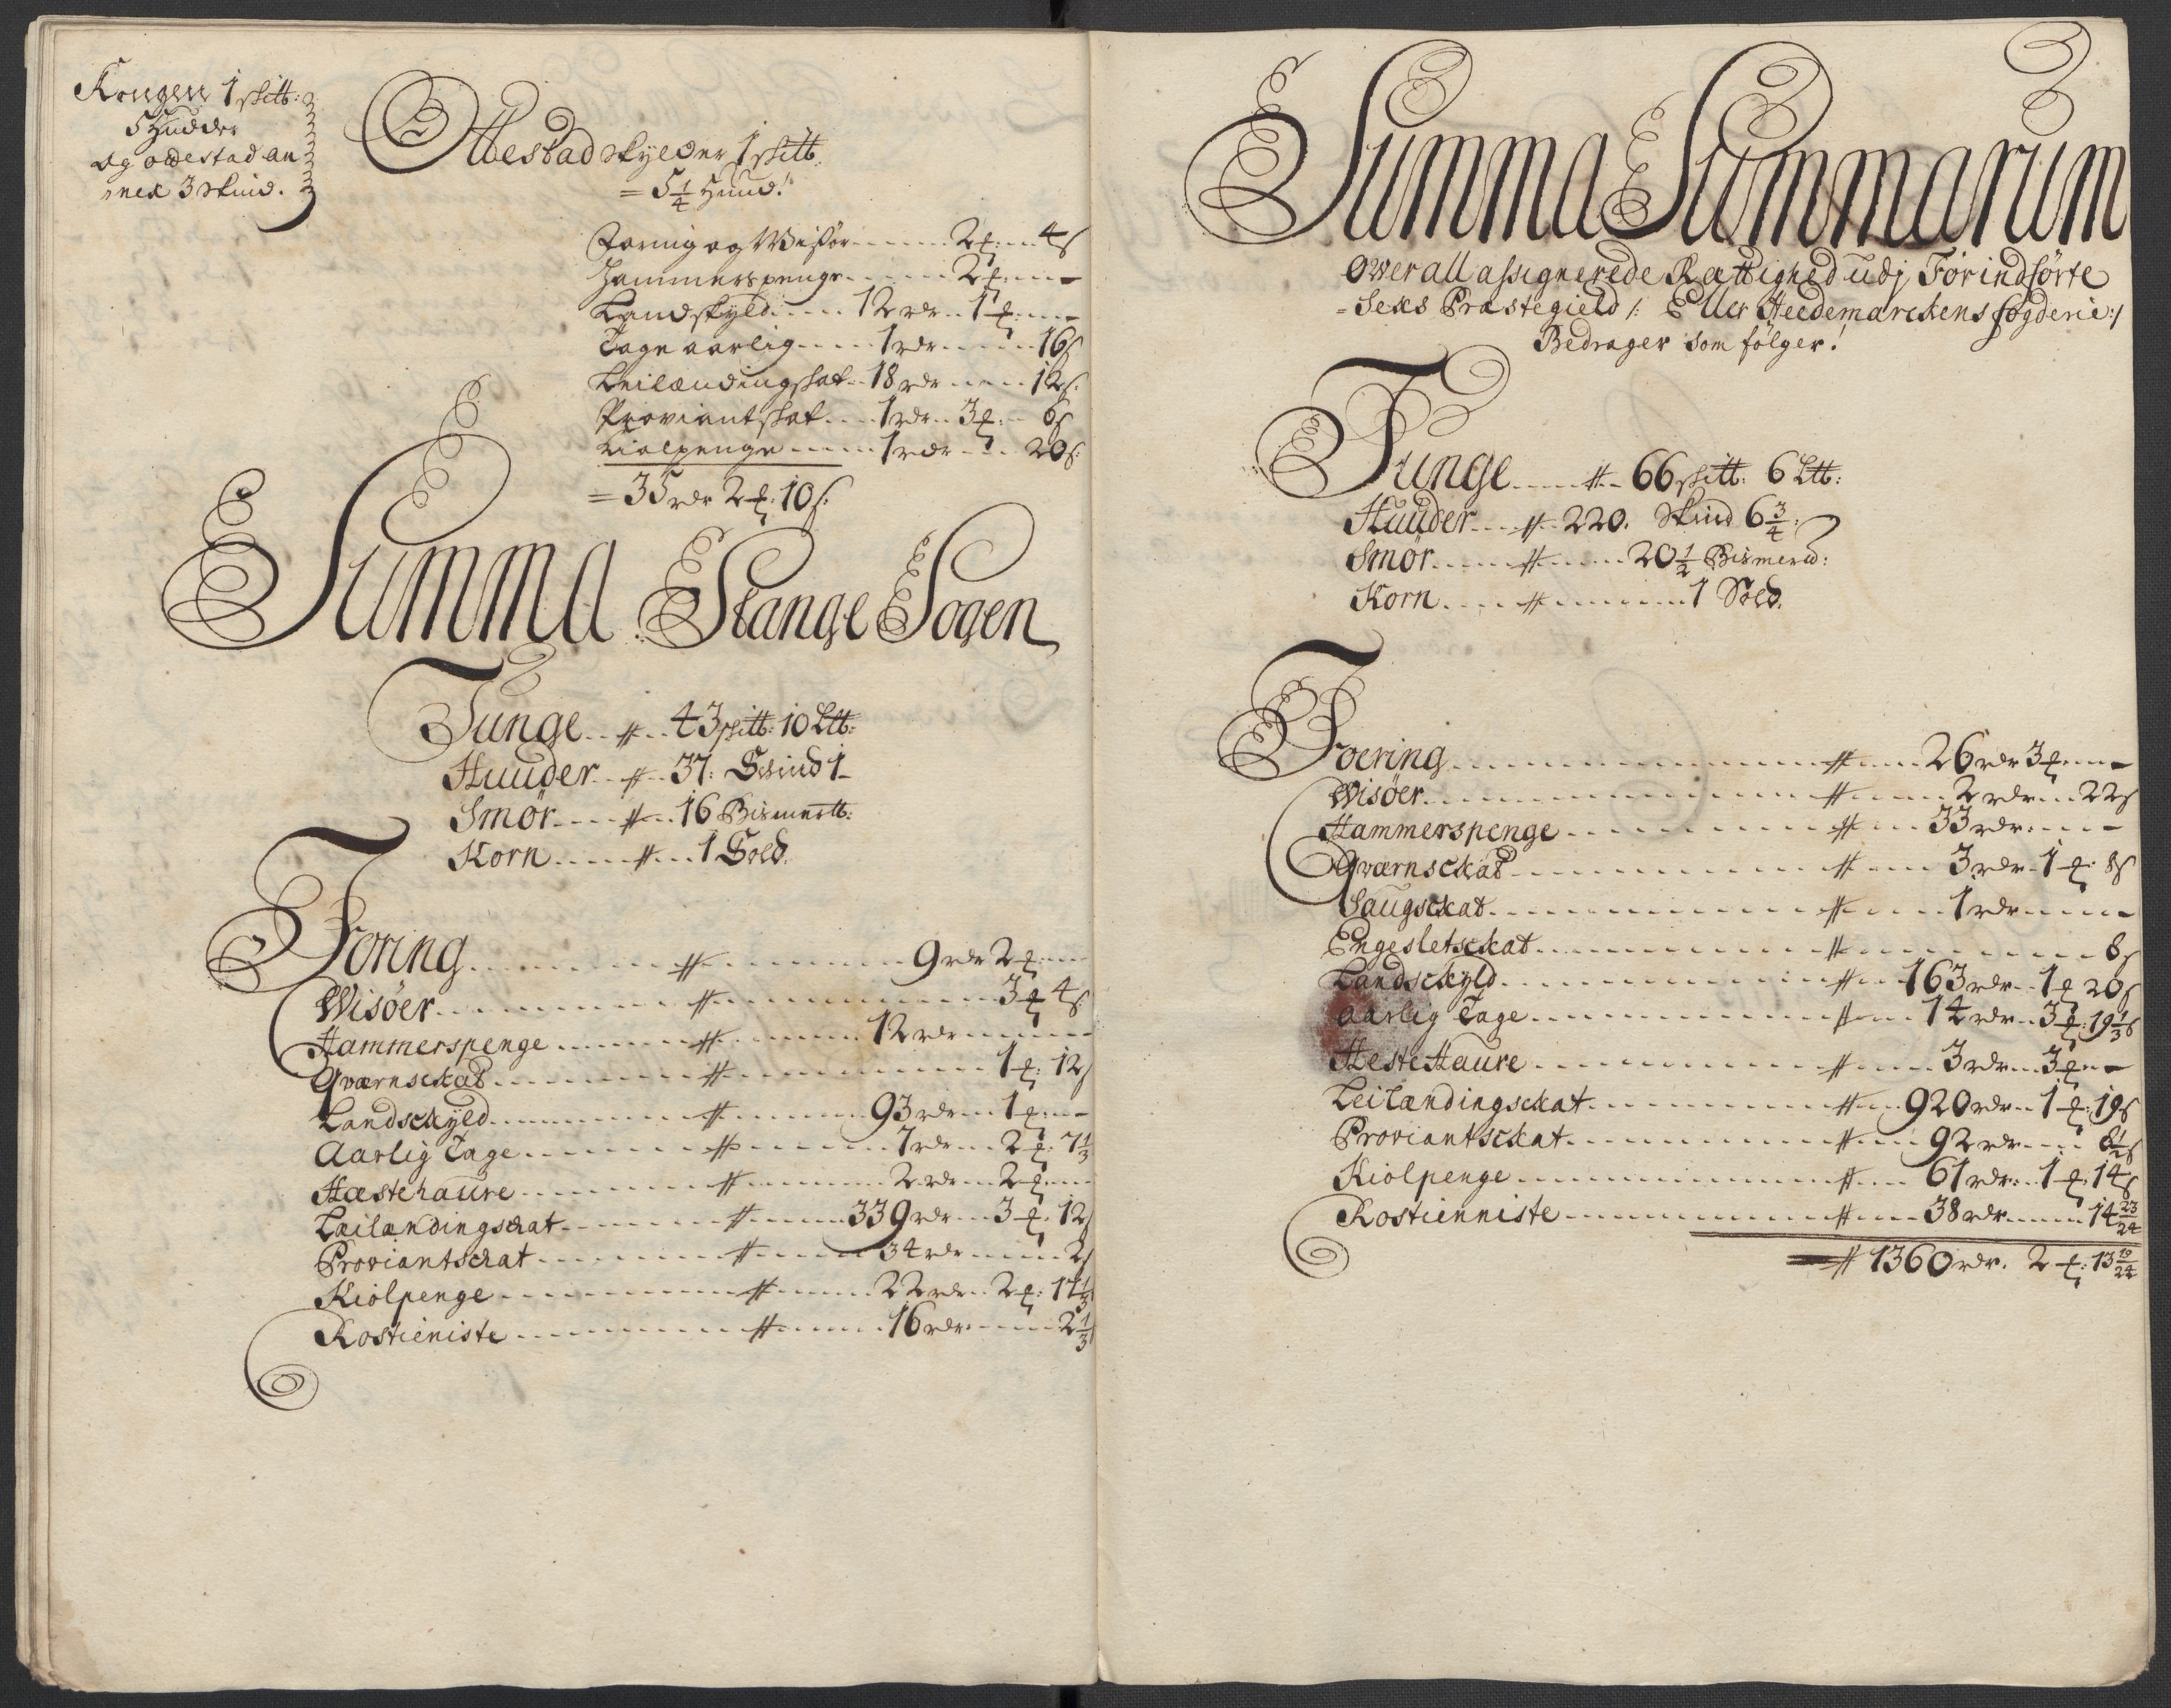 Kongen 1 skitt:
5 Hudder
og odestad an
nex 3 Skind.
Atestad skylder 1 skitt
= 5 1/4 Huud!
Foring og Wisør 2 f: 4 s
Hammerspenge 2 f:
Landskyld 12 rdr 1 f:
Tage aarlig 1 rdr 16 s
Leilændingskat 18 rdr 12 s:
Proviantskat 1 rdr 3 f: 6 s
Kiolpenge 1 rdr 20 s:
= 35 rdr 2 f: 10 s:
Summa Stange Sogen
Tunge 43 skitt: 10 Ltt:
Huuder 37: Skind 1
Smør 16 Bismertt:
Korn 1 Sold.
Foring 9 rdr 2 f:
Wisöer 3 f 4 s
Hammerspenge 12 rdr
Qværnsckat 1 f: 12 s
Landsckyld 93 rdr 1 f:
Aarlig Tage 7 rdr 2 f: 7 1/3
Hæstehaure 2 rdr 2 f:
Leilændingskat 339 rdr 3 f: 12 s
Proviantschat 34 rdr 2 s
Kiolpenge 22 rdr 2 f: 17 1/3
Rostieniste 16 rdr 2 1/3
Summa Summarum
Over all assignerede Rættighed udj Förindförte
Sexs Præstegield /: Eller Heedemarckens fogderie :/
Bedrager som fölger!
Tunge 66 skitt: 6 Ltt:
Huuder 220. Skind 6 3/4
Smör 20 1/2 Bismerd:
Korn 1 Sold.
Foering 26 rdr 3 f:
Wisöer 2 rdr 22 s
Hammerspenge 33 rdr:
Qværnsckat 3 rdr 1 f: 8 s
Saugsckat 1 rdr
Engesletsckat 8 s
Landsckyld 163 rdr 1 f 20 s
Aarlig Tage 14 rdr 3 f: 19 1/3 s
Heste Haure 3 rdr 3 f:
Leilændingsckat 920 rdr 1 f: 19 s
Proviantsckat 92 rdr 8 1/2 s
Kiolpenge 61 rdr: 1 f: 14 s
Rostienniste 38 rdr 14 23/24
1360 rdr. 2 f: 13 19/24